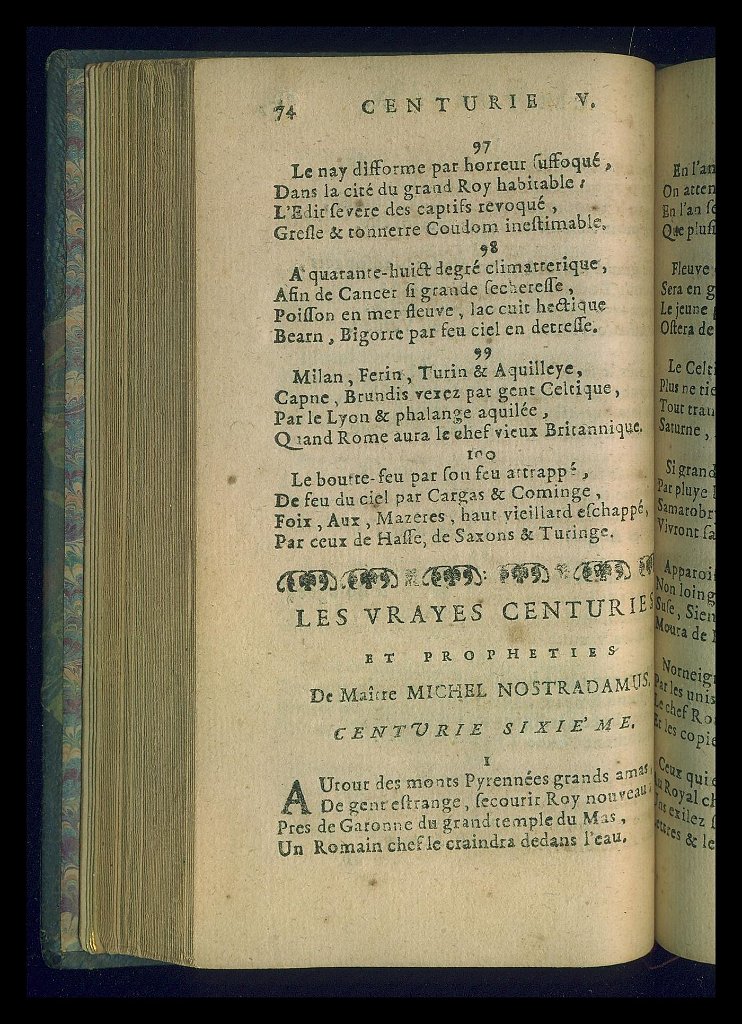 74 CENTURIE V.
97
Le nay difforme par horreur ſuffoqué,
Dans la cité du grand Roy habitable :
L'Edit ſevere des captifs revoqué,
Greſle & tonnerre Coudom ineſtimable.
98
A quarante-huict degré climatterique,
Afin de Cancer ſi grande ſechereſſe,
Poiſſon en mer fleuve, lac cuit hectique
Bearn, Bigorre par feu ciel en detreſſe.
99
Milan, Ferin, Turin & Aquilleye,
Capne, Brundis vexez par gent Celtique,
Par le Lyon & phalange aquilée,
Quand Rome aura le chef vieux Britannique.
100
Le boutte-feu par ſon feu attrappé,
De feu du ciel par Cargas & Cominge,
Foix, Aux, Mazeres, haut vieillard eſchappé,
Par ceux de Haſſe, de Saxons & Turinge.
LES VRAYES CENTURIES
ET PROPHETIES
De Maître MICHEL NOSTRADAMUS.
CENTURIE SIXIE'ME.
1
AUtour des monts Pyrennées grands amas
De gent eſtrange, ſecourir Roy nouveau
Pres de Garonne du grand temple du Mas,
Un Romain chef le craindra dedans l'eau.
En l'an
On atten
En l'an ſe
Que pluſi
Fleuve
Sera en g
Le jeune
Oſtera de
Le Celti
Plus ne tie
Tout tran
Saturne,
Si grand
Par pluye
Samarobr
Vivront ſa
Apparoi
Non loing
Suſe, Sien
Moura de
Norneig
Par les unis
Le chef Ro
Et les copie
Ceux qui
Au Royal ch
exilez
& le